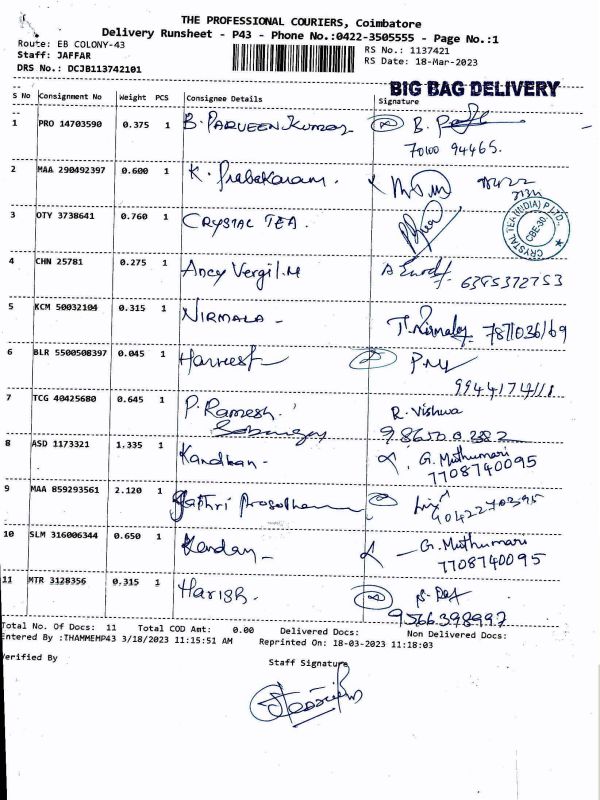 THE PROFESSIONAL COURIERS, Coimbatore
Delivery Runsheet - P43 - Phone No.:0422-3505555 - Page No.:1
Route: EB COLONY-43 RS No.: 1137421
Staff: JAFFAR RS Date: 18-Mar-2023
DRS No.: DCJB113742101
BIG BAG DELIVERY
S No Consignment No Weight PCS Consignee Details Signature
1 PRO 14703590 0.375 1 B. PARVEEN KUMAR B.
70100 94465.
2 MAA 290492397 0.600 1 K. Prabakaram.
3 OTY 3738641 0.760 1 CRYSTAL TEA.
CRYSTAL TEA (INDIA) P LTD.,
CBE-30
4 CHN 25781 0.275 1 Ancy Vergil.M
6385372753
5 KCM 50032104 0.315 1 NIRMALA - Nirmala
6 BLR 5500508397 0.045 1 Harvest
7 TCG 40425680 0.645 1 P. Ramesh. R. Vishwa
8 ASD 1173321 1.335 1 Kandhan - G. Muthumari
7708740095
9 MAA 859293561 2.120 1
9042270395
10 SLM 316006344 0.650 1 Kandan - G. Muthumari
7708740095
11 MTR 3128356 0.315 1 Harish.
9566398997
Total No. Of Docs: 11 Total COD Amt: 0.00 Delivered Docs: Non Delivered Docs:
Entered By :THAMMEMP43 3/18/2023 11:15:51 AM Reprinted On: 18-03-2023 11:18:03
Verified By Staff Signature